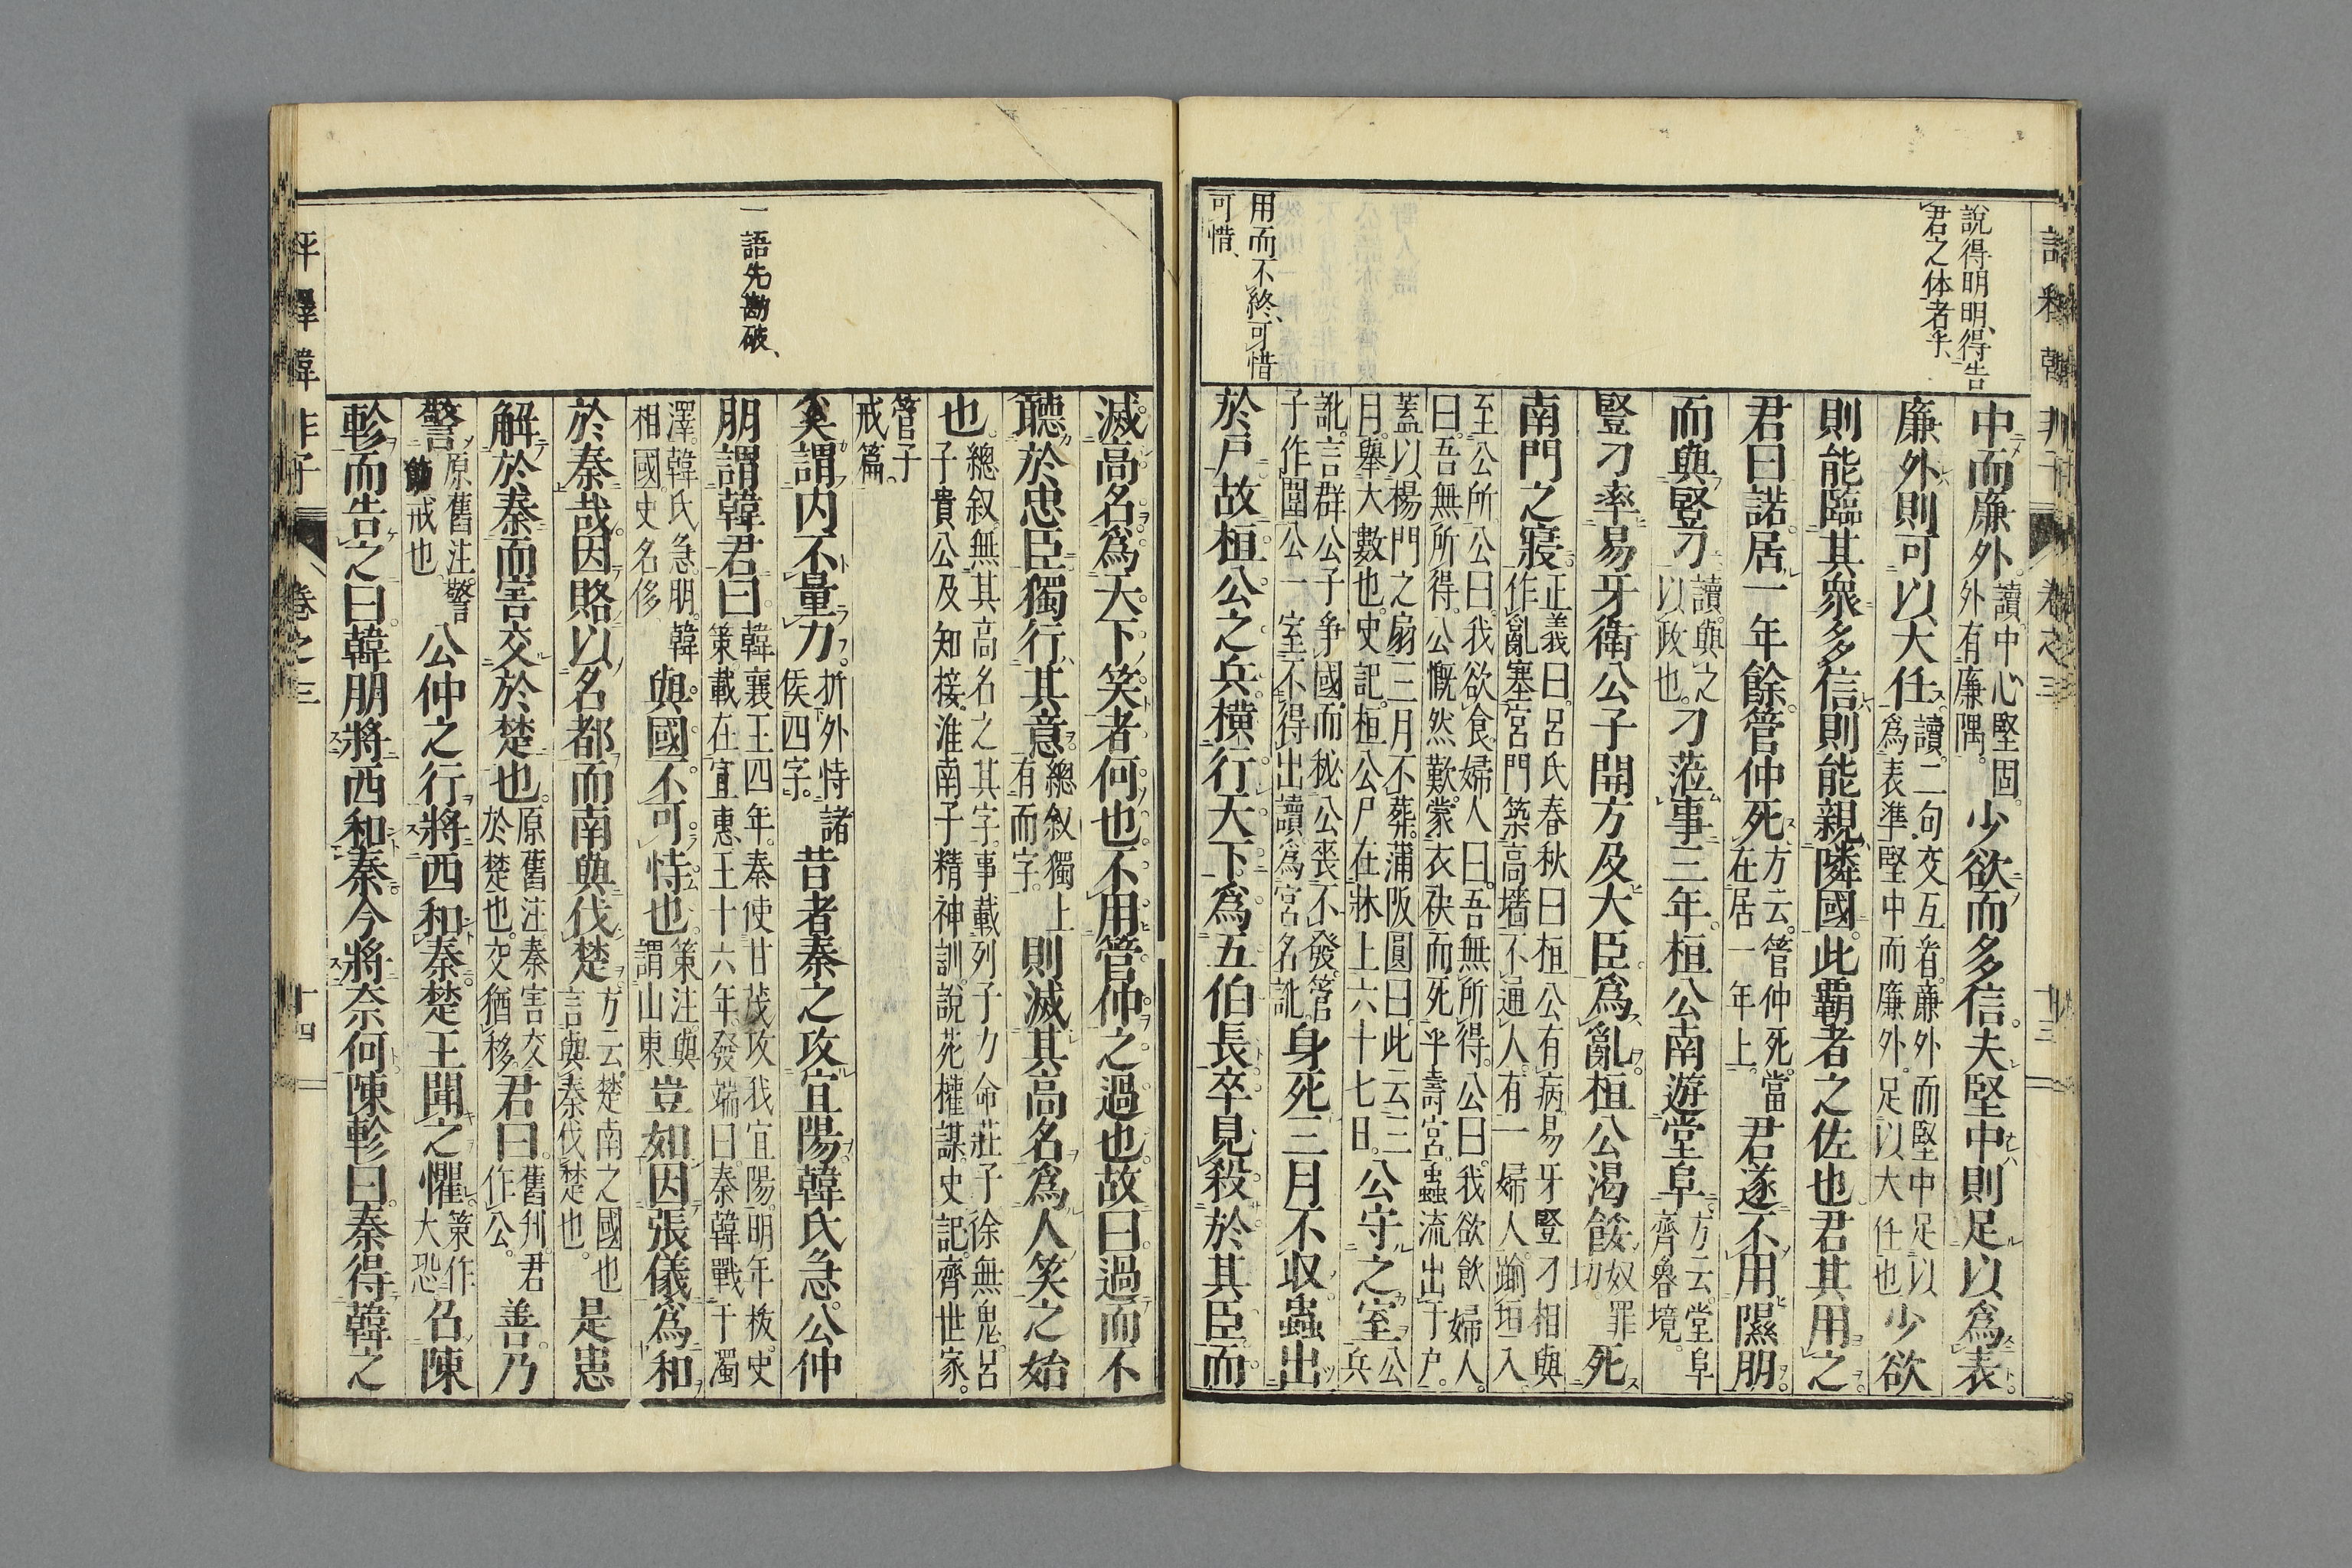 説得明明、得告
君之体者乎、
用而不終、可惜
可惜、
中而廉外。讀中心堅固。外有廉隅。少欲而多信。夫堅中則足以爲表。
廉外則可以大任。讀。二句交互者。廉外而堅中足以爲表準堅中而廉外。足以大任也少欲
則能臨其衆。多信則能親隣國。此霸者之佐也。君其用之。
君曰諾。居一年餘。管仲死。方云。管仲死。當在居一年上。君遂不用隰朋。
而與豎刁。讀。與之以政也。刁蒞事三年。桓公南遊堂阜。方云。堂阜齊魯境。
豎刁率易牙衛公子開方及大臣爲亂。桓公渴餒奴罪切死
南門之寢。正義曰。呂氏春秋曰桓公有病。易牙豎刁相與作亂塞宮門築高墻不通人。有一婦人。踰垣入
至公所。公曰。我欲食。婦人曰。吾無所得。公曰。我欲飲婦人。曰。吾無所得。公慨然歎。蒙衣袂而死乎壽宮。蟲流出于户。
蓋以楊門之扇三月不葬。蒲阪圓曰。此云三月。舉大數也。史記。桓公尸在牀上六十七日。公守之室公兵
訛。言群公子爭國。而秘公喪不發。管子作圍公一室不得出讀爲宮名訛身死三月不收。蟲出
於戸。故桓公之兵橫行天下。爲五伯長。卒見殺於其臣。而
評釋韓非子　卷之三　十三
一語先勘破、
滅高名。爲天下笑者。何也。不用管仲之過也。故曰過而不
聽於忠臣。獨行其意。總叙獨上有而字。則滅其高名爲人笑之始
也。總叙無其高名之其字。事載列子力命莊子徐無鬼。呂子貴公及知接。淮南子精神訓。說苑權謀。史記。齊世家。
管子戒篇。
奚謂内不量力。折外恃諸侯四字。昔者秦之攻宜陽。韓氏急。公仲
朋謂韓君曰。韓襄王四年。秦使甘茂攻我宜陽。明年拔。史策載在宜惠王十六年。發端曰。秦韓戰于濁
澤。韓氏急朋。韓相國。史名侈與國不可恃也。策注與謂山東豈如因張儀爲和
於秦哉。因賂以名都。而南與伐楚。方云。楚南之國也言與秦伐楚也。是患
解於秦而害交於楚也。原舊注。秦害交於楚也。交猶移君曰。舊刋。君作公。善。乃
警原舊注。警飭戒也公仲之行。將西和秦。楚王聞之懼。策作大恐。召陳
軫而告之曰。韓朋將西和秦。今將奈何。陳軫曰。秦得韓之
評釋韓非子　卷之三　十四